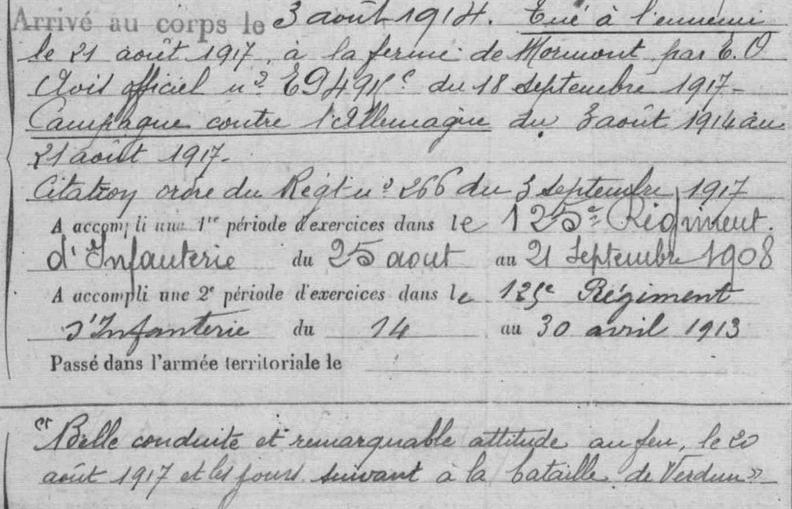 Arrivé au corps le 3 août 1914. Tué à l'ennemi
le 21 août 1917, à la ferme de Mormont par E.O
Avis officiel n° du 18 septembre 1917-
Campagne contre l'Allemagne du 3 août 1914 au
21 août 1917-
Citation ordre du Régt n° 266 du 3 septembre 1917
A accompli une 1re période d'exercices dans le 125e Régiment.
d'Infanterie du 25 aout au 21 Septembre 1908
A accompli une 2e période d'exercices dans le 125e Régiment
d'Infanterie du 14 au 30 avril 1913
Passé dans l'armée territoriale le
"Belle conduite et remarquable attitude au feu, le 20
août 1917 et les jours suivant à la bataille de Verdun"